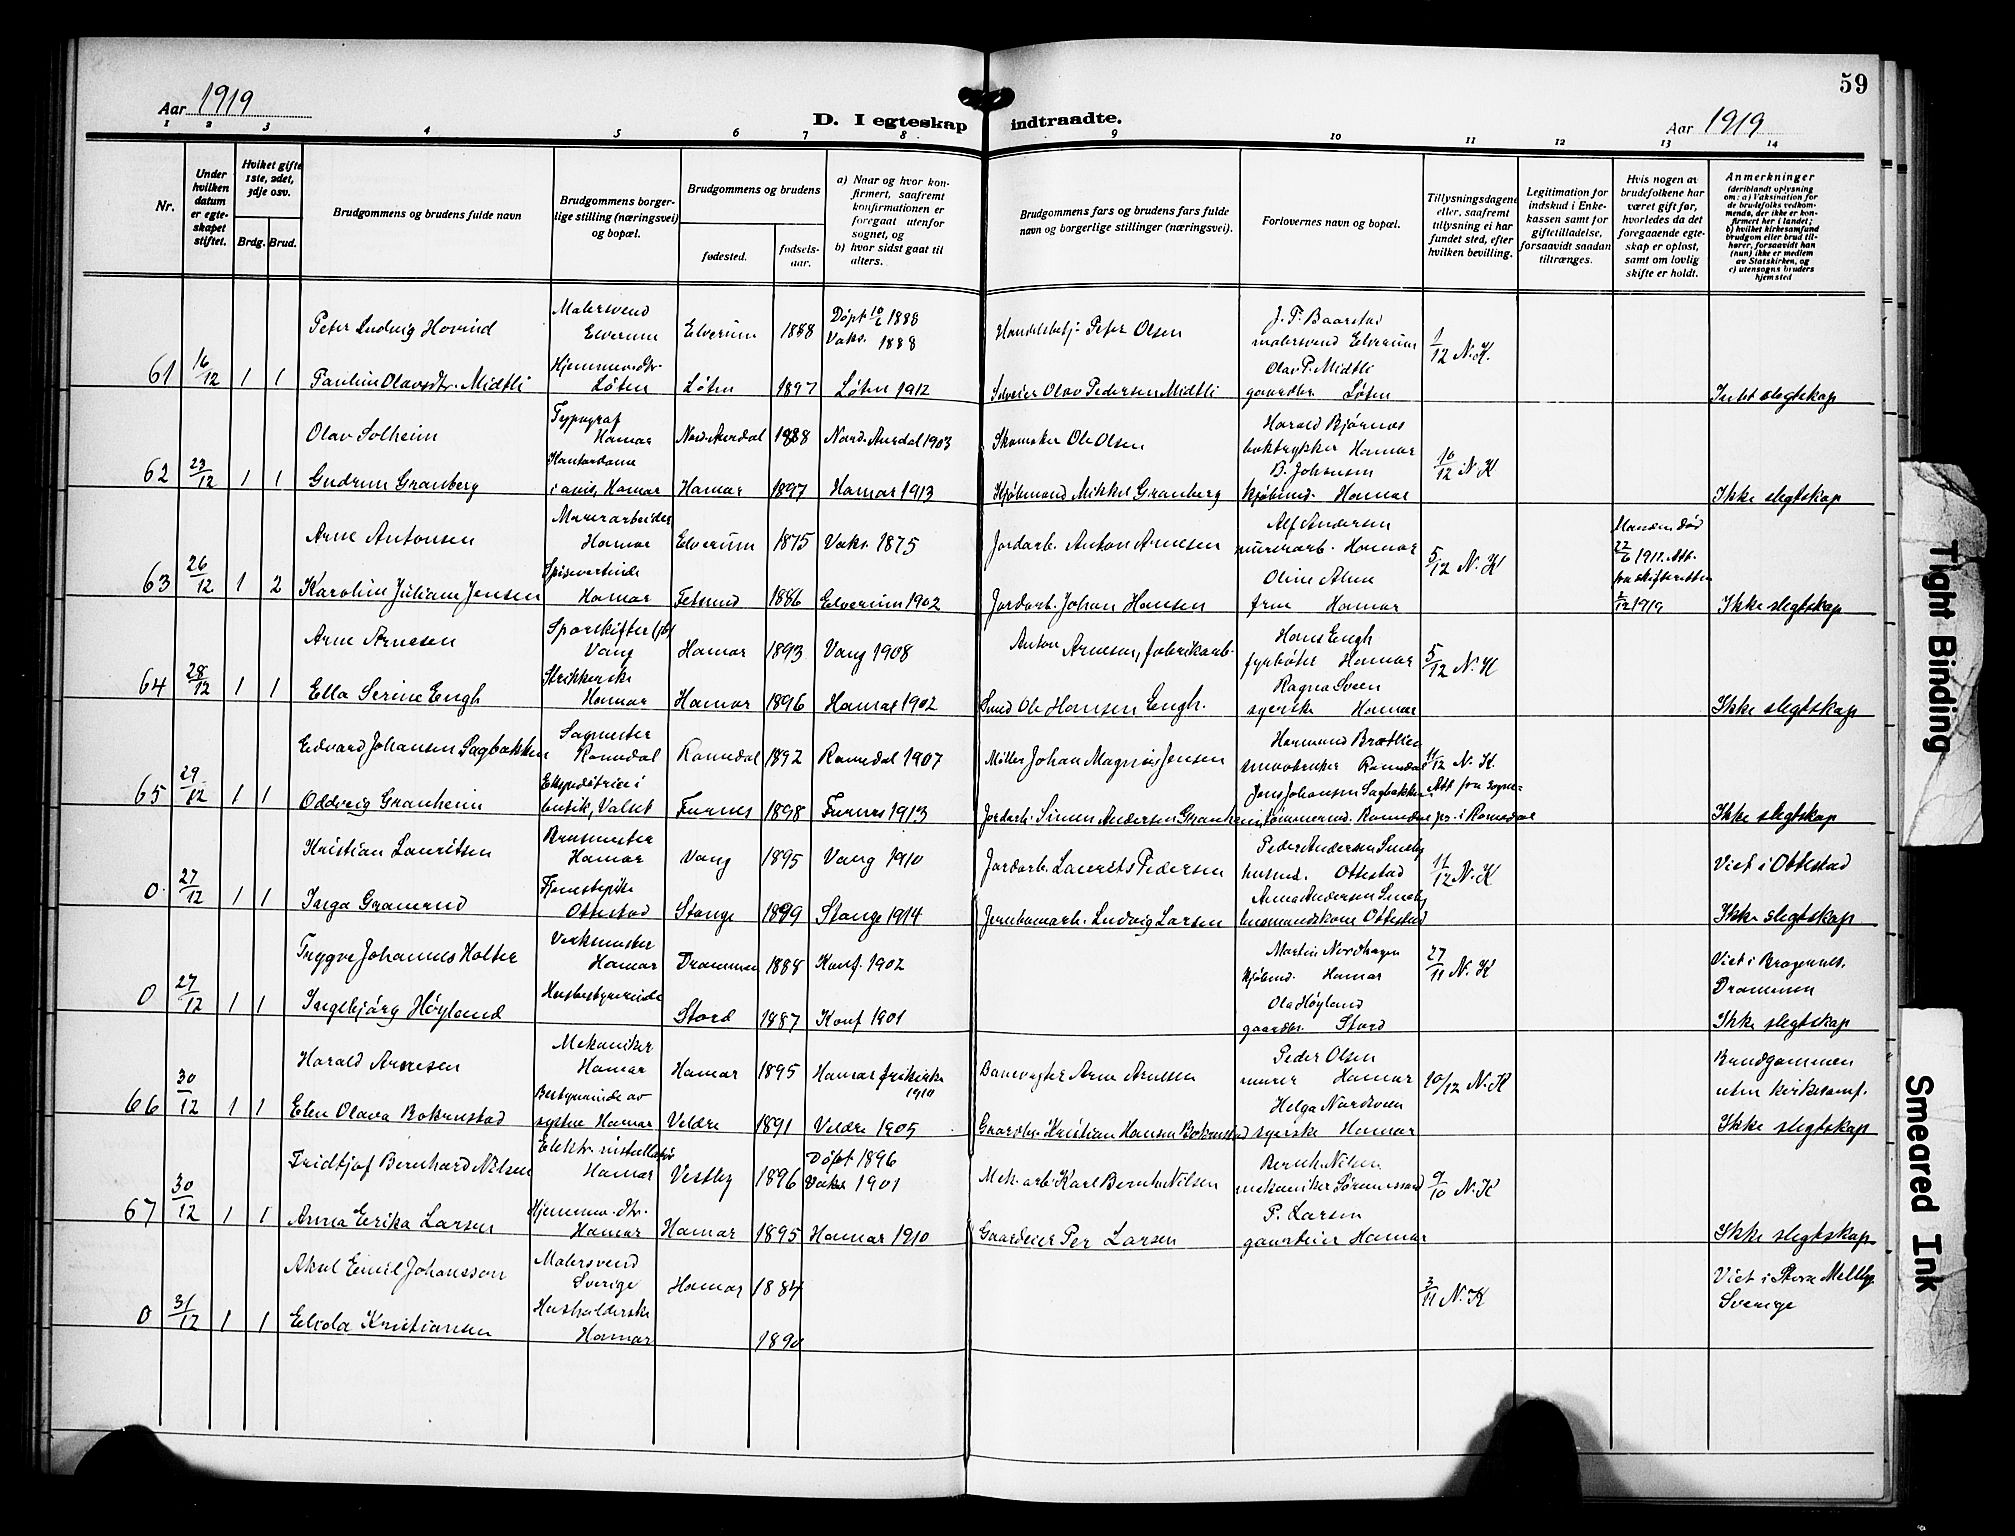 59
Aar 1919
D. I egteskap indtraadte.
Aar 1919
1 2 3 4 5 6 7 8 9 10 11 12 13 14
Nr.
Under hvilken datum er egteskapet stiftet.
Hvilket gifte 1ste, 2det, 3dje osv.
Brdg. Brud.
Brudgommens og brudens fulde navn
Brudgommens borgerlige stilling (næringsvei) og bopæl.
Brudgommens og brudens
fødested.
fødselsaar.
a) Naar og hvor konfirmert, saafremt konfirmationen er foregaat utenfor sognet, og
b) hvor sidst gaat til alters.
Brudgommens fars og brudens fars fulde navn og borgerlige stillinger (næringsvei).
Forlovernes navn og bopæl.
Tillysningsdagene eller, saafremt tillysning ei har fundet sted, efter hvilken bevilling.
Legitimation for indskud i Enkekassen samt for giftetilladelse, forsaavidt saadan tiltrænges.
Hvis nogen av brudefolkene har været gift før, hvorledes da det foregaaende egteskap er opløst, samt om lovlig skifte er holdt.
Anmerkninger
(deriblandt oplysning om: a) Vaksination for de brudefolks vedkommende, der ikke er konfirmert her i landet; b) hvilket kirkesamfund brudgom eller brud tilhører, forsaavidt han (hun) ikke er medlem av Statskirken, og c) utensogns bruders hjemsted
Peter Ludvig Hovind Malersvend Elverum Elverum 1888 Døpt 10/6 1888 Vaks. 1888 Handelsbetj. Peter Olsen J. P. Baarstad malersvend Elverum 1/12 N. K.
61 16/12 1 1 Pauline Olavsdtr. Midtli Hjemmev. dtr. Løten Løten 1897 Løten 1912 Selveier Olav Pedersen Midtli Olav P. Midtli gaardbr. Løten Intet slegtskap
Olav Solheim Typograf Hamar Nord. Aurdal 1888 Nord. Aurdal 1903 Skomaker Ole Olsen Harald Bjørnos boktrykker Hamar 10/12 N. K
62 23/12 1 1 Gudrun Granberg Kontordame i avis, Hamar Hamar 1897 Hamar 1913 Kjøbmand Mikkel Granberg B. Johansen kjøbmd. Hamar Ikke slegtskap
Arne Antonsen Murerarbeider Hamar Elverum 1875 Vaks. 1875 Jordarb. Anton Arnesen Alf Andersen murerarb. Hamar 5/12 N. K Manden død 22/6 1911. Att. fra skifteretten 2/12 1919
63 26/12 1 2 Karoline Juliane Jensen Spisevertinde Hamar Fetsund 1886 Elverum 1902 Jordarb. Johan Hansen Oline Alme frue Hamar Ikke slegtskap
Arne Arnesen Sporskifter (jb) Vang Hamar 1893 Vang 1908 Anton Arnesen, fabrikarb. Hans Engh fyrbøter Hamar 5/12 N. K
64 28/12 1 1 Ella Serine Engh Strikkerske Hamar Hamar 1896 Hamar 1902 Smed Ole Hansen Engh. Ragna Sveen syerske Hamar Ikke slegtskap
Edvard Johansen Sagbakken Sagmester Romedal Romedal 1892 Romedal 1907 Møller Johan Magnus Jensen Hermund Brætlien smaabruker Romedal 11/12 N. K. Att fra sogne-
65 29/12 1 1 Oddveig Granheim Ekspeditrice i butik, Valset Furnes 1898 Furnes 1913 Jordarb. Simen Andersen Granheim Jens Johansen Sagbakken tømmermd. Romedal pr. i Romedal Ikke slegtskap
Kristian Lauritsen Brusmester Hamar Vang 1895 Vang 1910 Jordarb. Laurits Pedersen Peder Andersen Smeby husmd. Ottestad 11/12 N. K Viet i Ottestad
0 27/12 1 1 Inga Gramrud Tjenestepike Ottestad Stange 1899 Stange 1914 Jernbanearb. Ludvig Larsen Anna Andersen Smeby husmandskone Ottestad Ikke slegtskap
Trygve Johannes Holter Verksmester Hamar Drammen 1888 Konf. 1902 Martin Nordhagen kjøbmd. Hamar 27/11 N. K Viet i Bragernes. Drammen
0 27/12 1 1 Ingebjørg Høyland Husbestyrerinde Stord 1887 Konf 1901 Ola Høyland gaardbr. Stord Ikke slegtskap
Harald Arnesen Mekaniker Hamar Hamar 1895 Hamar frikirke 1910 Banevogter Arne Arnesen Peder Olsen murer Hamar 10/12 N. K Brudgommen uten kirkesamf.
66 30/12 1 1 Elen Olava Bokenstad Bestyrerinde av systue Hamar Veldre 1891 Veldre 1905 Gaardbr. Kristian Hansen Bokenstad Helga Nordsveen syerske Hamar Ikke slegtskap
Fridtjof Bernhard Nilsen Elektr. installatør Hamar Vestby 1896 Døpt 1896 Vaks 1901 Mek. arb. Karl Bernh. Nilsen Bernh. Nilsen mekaniker 9/10 N. K
67 30/12 1 1 Anna Erika Larsen Hjemmev. dtr. Hamar Hamar 1895 Hamar 1910 Gaardeier Per Larsen P. Larsen gaardeier Hamar Ikke slegtskap
Aksel Emil Johansson Malersvend Sverige Hamar 1884 3/11 N. K Viet i Stora Mellby Sverige
0 31/12 1 1 Kristiansen Husholderske Hamar 1890
Tight Binding
Smeared Ink